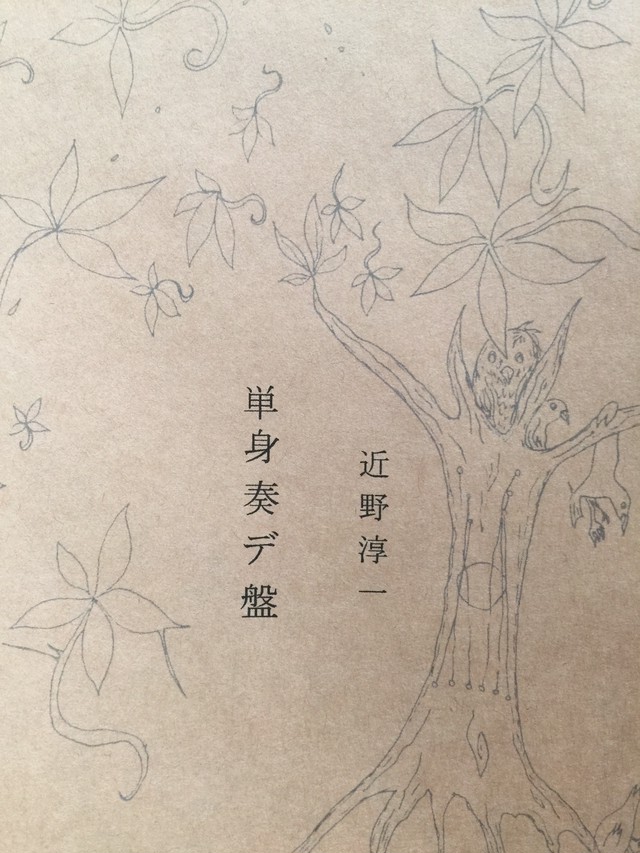 近野淳一
単身奏デ盤